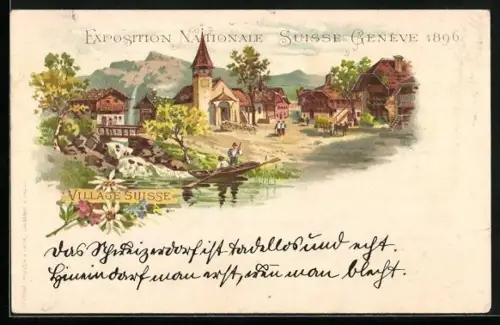 EXPOSITION NATIONALE SUISSE GENÈVE 1896
VILLAGE SUISSE
Das Schweizerdorf ist tadellos und echt.
Hinein darf man erst, wen man blecht.